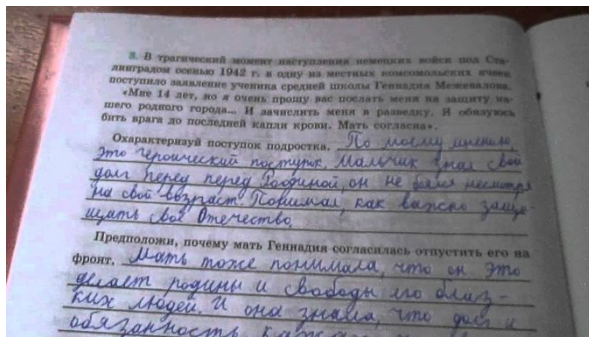 8. В трагический момент наступления немецких войск под Ста-
линградом осенью 1942 г. в одну из местных комсомольских ячеек
поступило заявление ученика средней школы Геннадия Межевалова.
«Мне 14 лет, но я очень прошу вас послать меня на защиту на-
шего родного города... И зачислить меня в разведку. Я обязуюсь
бить врага до последней капли крови. Мать согласна».
Охарактеризуй поступок подростка. По моему мнению,
это героический поступок. Мальчик знал свой
долг перед перед Родиной, он не боялся несмотря
на свой возраст. Понимал, как важно защи-
щать своё Отечество.
Предположи, почему мать Геннадия согласилась отпустить его на
фронт. Мать тоже понимала, что он это
делает родины и свободы его близ-
ких людей. И она знала, что долг и
обязанность